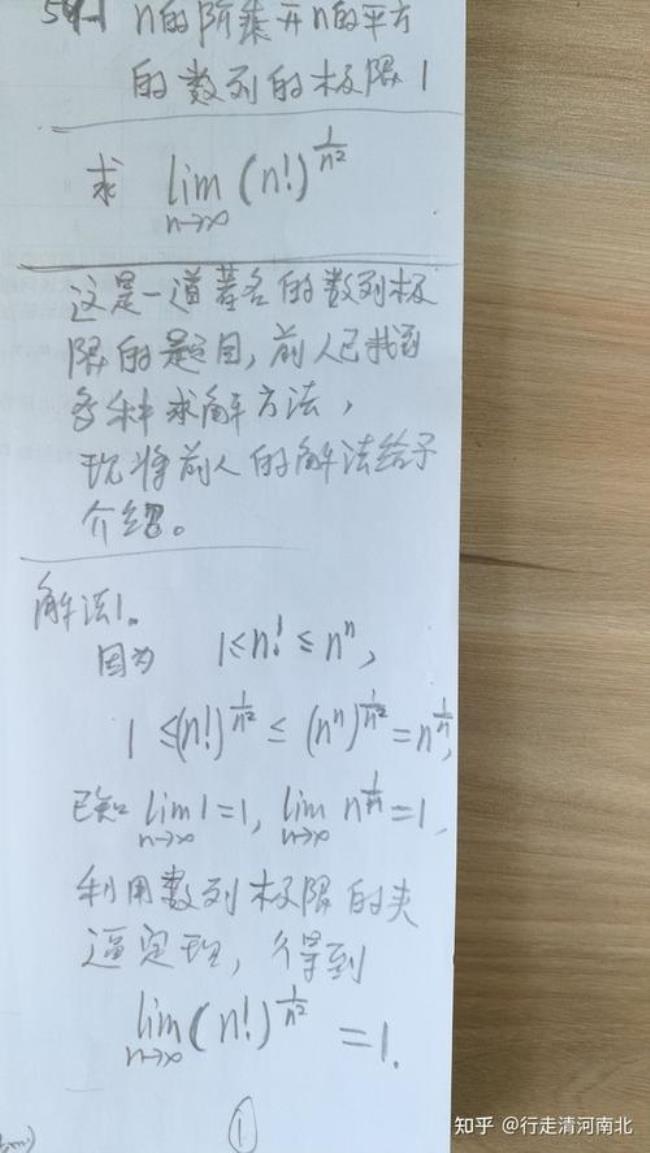 n的阶乘开n的平方
的数列的极限1
求 lim (n!)^(1/n²)
n→∞
这是一道著名的数列极
限的题目,前人已找到
多种求解方法,
现将前人的解法给予
介绍。
解法1。
因为 1≤n!≤nⁿ,
1≤(n!)^(1/n²)≤(nⁿ)^(1/n²)=n^(1/n),
已知 lim 1=1, lim n^(1/n)=1,
n→∞ n→∞
利用数列极限的夹
逼定理,得到
lim (n!)^(1/n²) =1.
n→∞
①
知乎 @行走清河南北